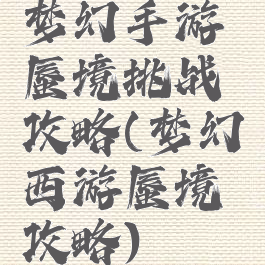 梦幻手游
蜃境挑战
攻略(梦幻
西游蜃境
攻略)